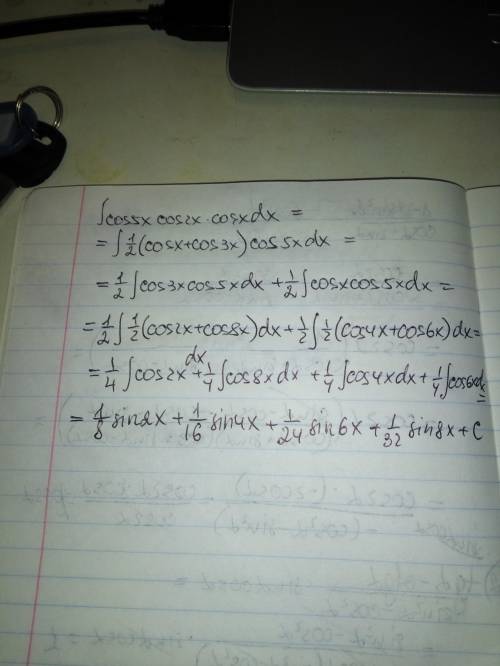 ∫cos5x cos2x·cosxdx =
= ∫ 1/2 (cosx+cos3x) cos5xdx =
= 1/2 ∫cos3xcos5xdx + 1/2 ∫cosxcos5xdx =
= 1/2 ∫ 1/2 (cos2x+cos8x)dx + 1/2 ∫ 1/2 (cos4x+cos6x)dx =
= 1/4 ∫cos2x dx + 1/4 ∫cos8xdx + 1/4 ∫cos4xdx + 1/4 ∫cos6xdx =
= 1/8 sin2x + 1/16 sin4x + 1/24 sin6x + 1/32 sin8x + C